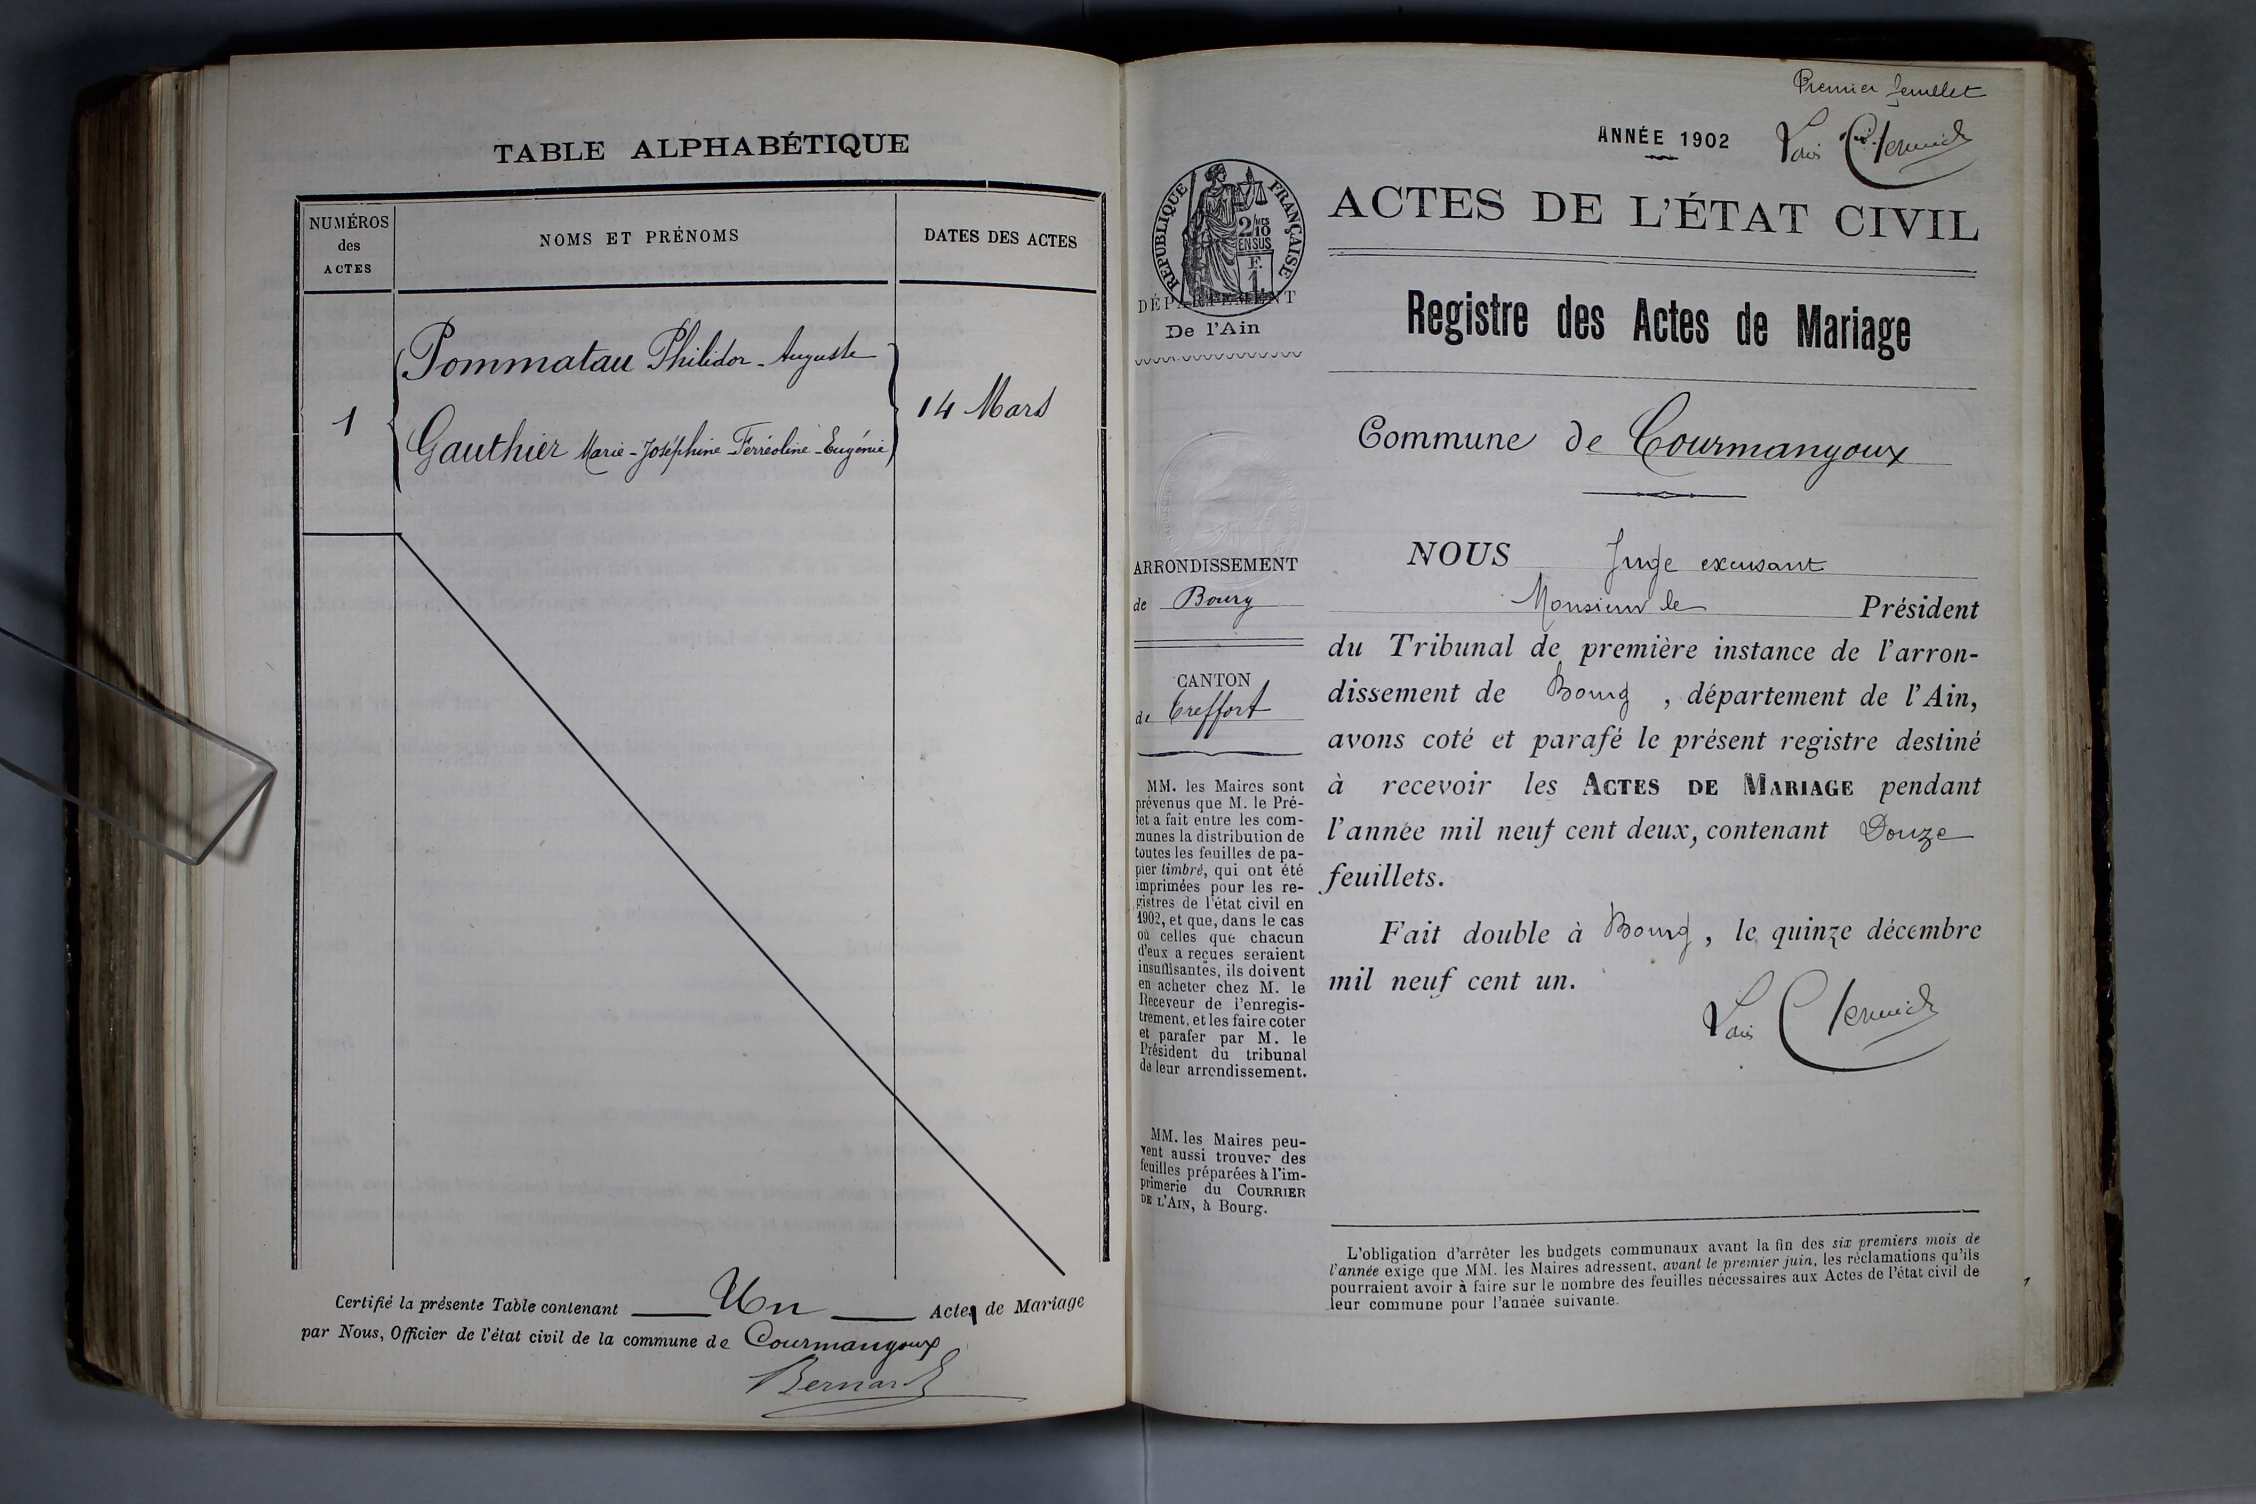 TABLE ALPHABÉTIQUE
NUMÉROS
des
ACTES
NOMS ET PRÉNOMS
DATES DES ACTES
1
Pommatau Philidor-Auguste
Gauthier Marie-Joséphine-Ferréoline-Eugénie
14 Mars
Certifié la présente Table contenant Un Actes de Mariage
par Nous, Officier de l'état civil de la commune de Courmangoux
Bernard
Premier feuillet
ANNÉE 1902
Louis
ACTES DE L'ÉTAT CIVIL
RÉPUBLIQUE FRANÇAISE
2/10 MES
EN SUS
F.
1
DÉPARTEMENT
De l'Ain
Registre des Actes de Mariage
Commune de Courmangoux
ARRONDISSEMENT
de Bourg
CANTON
de Treffort
MM. les Maires sont
prévenus que M. le Pré-
fet a fait entre les com-
munes la distribution de
toutes les feuilles de pa-
pier timbré, qui ont été
imprimées pour les re-
gistres de l'état civil en
1902, et que, dans le cas
où celles que chacun
d'eux a reçues seraient
insuffisantes, ils doivent
en acheter chez M. le
Receveur de l'enregis-
trement, et les faire coter
et parafer par M. le
Président du tribunal
de leur arrondissement.
MM. les Maires peu-
vent aussi trouver des
feuilles préparées à l'im-
primerie du COURRIER
DE L'AIN, à Bourg.
NOUS Juge excusant
Monsieur le Président
du Tribunal de première instance de l'arron-
dissement de Bourg, département de l'Ain,
avons coté et parafé le présent registre destiné
à recevoir les ACTES DE MARIAGE pendant
l'année mil neuf cent deux, contenant Douze
feuillets.
Fait double à Bourg, le quinze décembre
mil neuf cent un.
Louis
L'obligation d'arrêter les budgets communaux avant la fin des six premiers mois de
l'année exige que MM. les Maires adressent, avant le premier juin, les réclamations qu'ils
pourraient avoir à faire sur le nombre des feuilles nécessaires aux Actes de l'état civil de
leur commune pour l'année suivante.